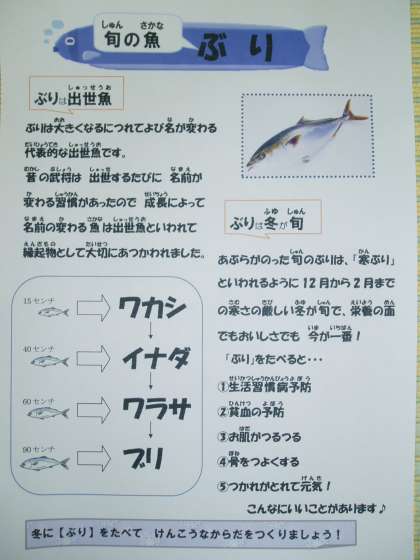 旬の魚
ぶり
ぶりは出世魚
ぶりは大きくなるにつれてよび名が変わる
代表的な出世魚です。
昔の武将は 出世するたびに 名前が
変わる習慣があったので 成長によって
名前の変わる 魚は出世魚といわれて
縁起物として大切にあつかわれました。
15センチ ワカシ
40センチ イナダ
60センチ ワラサ
90センチ ブリ
ぶりは冬が旬
あぶらがのった旬のぶりは、「寒ぶり」
といわれるように12月から2月まで
の寒さの厳しい冬が旬で、栄養の面
でもおいしさでも 今が一番！
「ぶり」をたべると・・・
①生活習慣病予防
②貧血の予防
③お肌がつるつる
④骨をつよくする
⑤つかれがとれて元気！
こんなにいいことがあります♪
冬に【ぶり】をたべて けんこうなからだをつくりましょう！